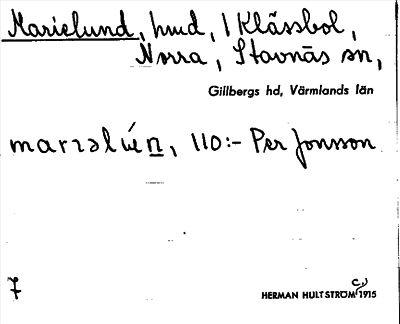 Marielund, hmd, i Klässbol,
Norra, Stavnäs sn,
Gillbergs hd, Värmlands län
110:- Per Jonsson
7
HERMAN HULTSTRÖM 1915